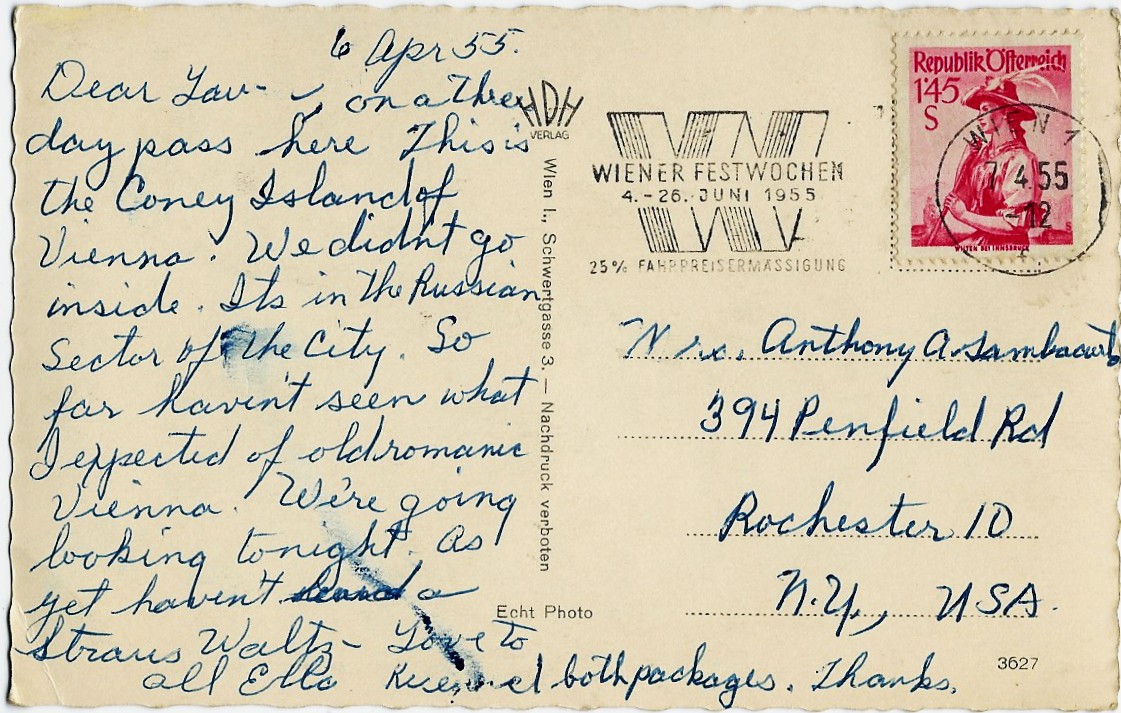 6 Apr 55.
Dear Lav- , on a three
day pass here This is
the Coney Island of
Vienna. We didn't go
inside. Its in the Russian
Sector of the City. So
far haven't seen what
I expected of old romanic
Vienna. We're going
looking tonight. As
yet haven't heard a
Straus Waltz - Love to
all Ella Received both packages. Thanks.
HDH
VERLAG
Wien I., Schwertgasse 3. — Nachdruck verboten
Echt Photo
WIENER FESTWOCHEN
4.-26. JUNI 1955
25% FAHRPREISERMÄSSIGUNG
Republik Österreich
1'45
S
WILTEN BEI INNSBRUCK
WIEN 1
7.4.55
-12
Mrs. Anthony A.
394 Penfield Rd
Rochester 10
N.Y., USA.
3627